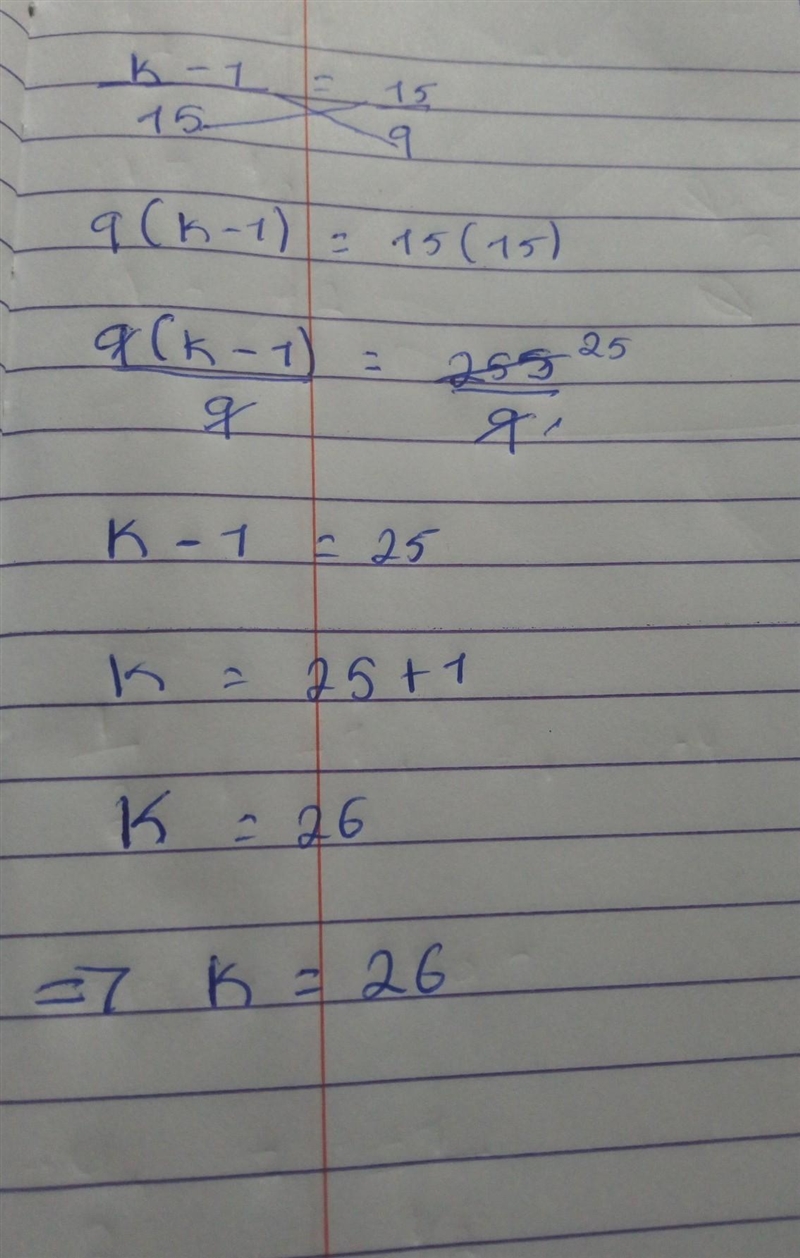 K - 1 = 15
15 9
9(K-1) = 15(15)
9(K-1) = 255 25
9 9 1
K - 1 = 25
K = 25+1
K = 26
=> K = 26